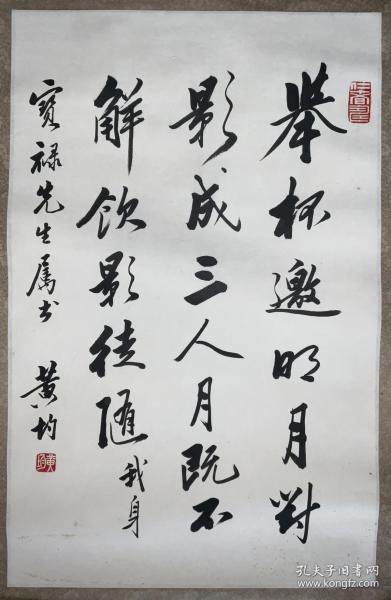 舉杯邀明月對
影成三人月既不
解飲影徒隨我身
寶祿先生屬書
黃均
孔夫子旧书网
www.kongfz.com